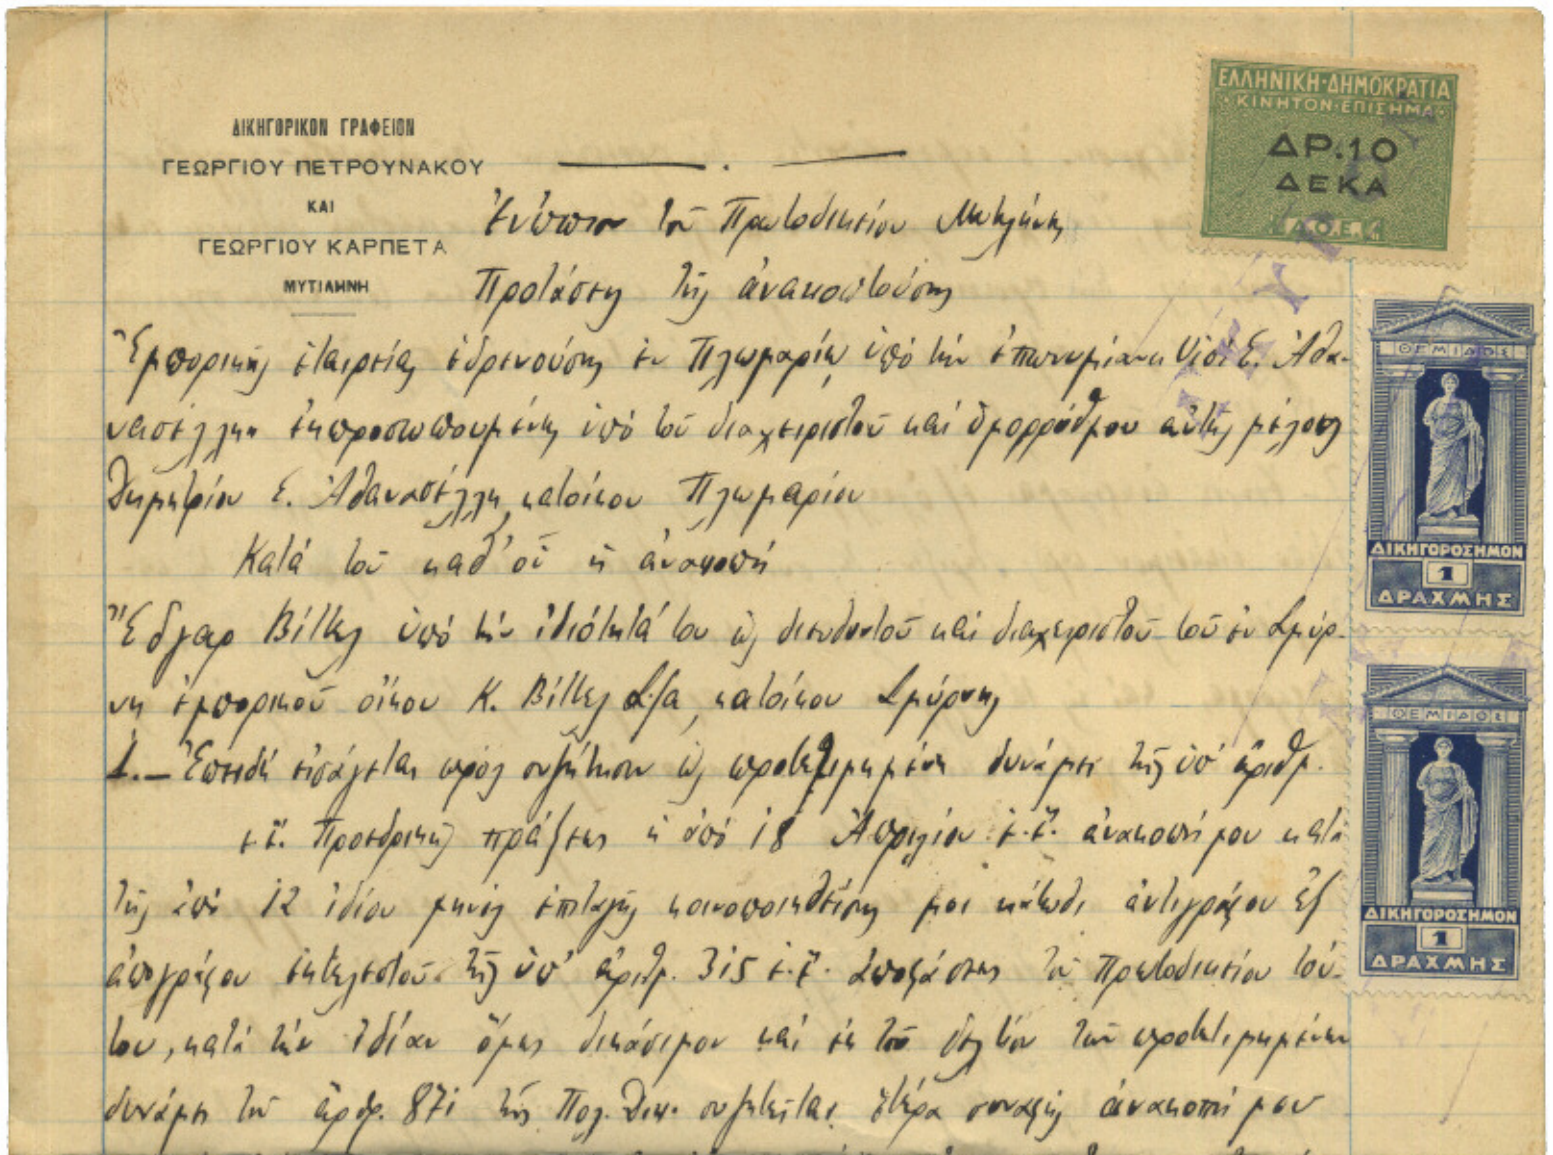 ΔΙΚΗΓΟΡΙΚΟΝ ΓΡΑΦΕΙΟΝ
ΓΕΩΡΓΙΟΥ ΠΕΤΡΟΥΝΑΚΟΥ
ΚΑΙ
ΓΕΩΡΓΙΟΥ ΚΑΡΠΕΤΑ
ΜΥΤΙΛΗΝΗ
ΕΛΛΗΝΙΚΗ·ΔΗΜΟΚΡΑΤΙΑ
ΚΙΝΗΤΟΝ·ΕΠΙΣΗΜΑ
ΔΡ.10
ΔΕΚΑ
Α.Ο.Ε.
Ἐνώπιον τοῦ Πρωτοδικείου Μυτιλήνης
Προτάσεις τῆς ἀνακοπτούσης
Ἐμπορικῆς ἑταιρείας ἑδρευούσης ἐν Πλωμαρίῳ ὑπό τήν ἐπωνυμίαν Υἱοί Ε. Ἀθα-
νασέλλη ἐκπροσωπουμένης ὑπό τοῦ διαχειριστοῦ καί ὁμορρύθμου αὐτῆς μέλους
Δημητρίου Ε. Ἀθανασέλλη, κατοίκου Πλωμαρίου
Κατά τοῦ καθ' οὗ ἡ ἀνακοπή
Ἔδγαρ Βίτελ ὑπό τήν ἰδιότητά του ὡς διευθυντοῦ καί διαχειριστοῦ τοῦ ἐν Σμύρ-
νῃ ἐμπορικοῦ οἴκου Κ. Βίτελ κατοίκου Σμύρνης
1.— Ἐπειδή εἰσάγεται πρός συζήτησιν ὡς προτετιμημένη δυνάμει τῆς ὑπ' ἀριθμ.
ἐ.ἔ. Προεδρικῆς πράξεως ἡ ἀπό 18 Ἀπριλίου ἐ.ἔ. ἀνακοπή μου κατά
τῆς ἀπό 12 ἰδίου μηνός ἐπιταγῆς κοινοποιηθείσης μοι κάτωθι ἀντιγράφου ἐξ
ἀπογράφου ἐκτελεστοῦ τῆς ὑπ' ἀριθμ. 315 ἐ.ἔ. ἀποφάσεως τοῦ Πρωτοδικείου τού-
του, κατά τήν ἰδίαν ὅμως δικάσιμον καί ἐκ τοῦ δελτίου τῶν προτετιμημένων
δυνάμει τοῦ ἄρθρ. 871 τῆς Πολ. Δικ. συζητεῖται ἑτέρα συναφής ἀνακοπή μου
ΘΕΜΙΔΟΣ
ΔΙΚΗΓΟΡΟΣΗΜΟΝ
1
ΔΡΑΧΜΗΣ
ΘΕΜΙΔΟΣ
ΔΙΚΗΓΟΡΟΣΗΜΟΝ
1
ΔΡΑΧΜΗΣ